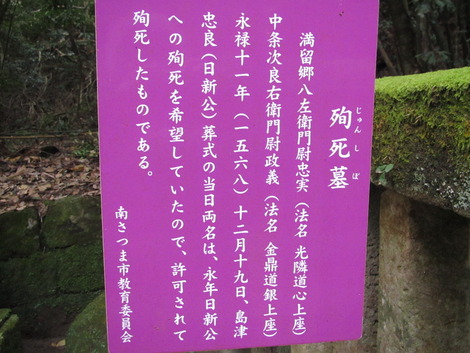 殉死墓
じゅんしぼ
満留郷八左衛門尉忠実(法名 光隣道心上座)
中条次良右衛門尉政義(法名 金鼎道銀上座)
永禄十一年(一五六八)十二月十九日、島津
忠良(日新公)葬式の当日両名は、永年日新公
への殉死を希望していたので、許可されて
殉死したものである。
南さつま市教育委員会